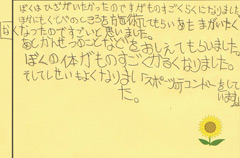 ぼくはひざがいたかったのですがものすごくらくになりました。
ほかにもくびのしせいを施術してもらいあたまがいたく
なくなったのですごいと思いました。
あしがもつことなどをおしえてもらいました。
ぼくの体がものすごくかるくなりました。
そしてしせいもよくなりました。
スポーツ テコンドーをしています